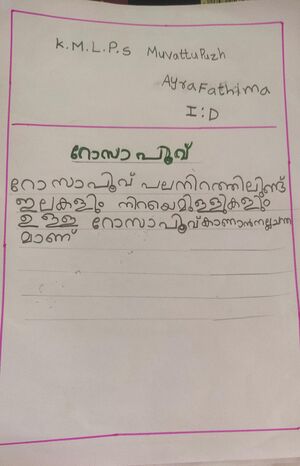 K.M.L.P.S Muvattupuzh
Ayra Fathima
I:D
റോസാപൂവ്
റോസാപൂവ് പലനിറത്തിലുണ്ട്
ഇലകളും നിറയെമുള്ളുകളും
ഉള്ള റോസാപൂവ്കാണാൻനല്ലചന്ത
മാണ്